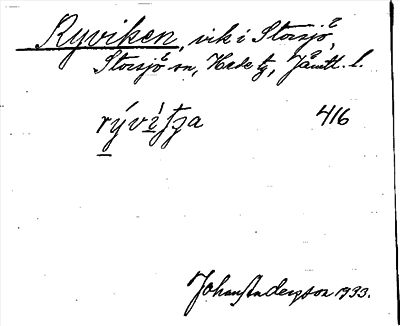 Ryviken, vik i Storsjö,
Storsjö sn, Härde tg, Jämtl. l.
416
Johan Anderson 1933.